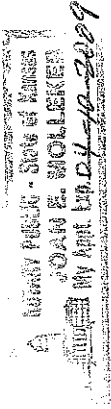 NOTARY PUBLIC - State of Kansas
JOAN E. WOLLEKER
My Appt. Exp. 04-10-2009